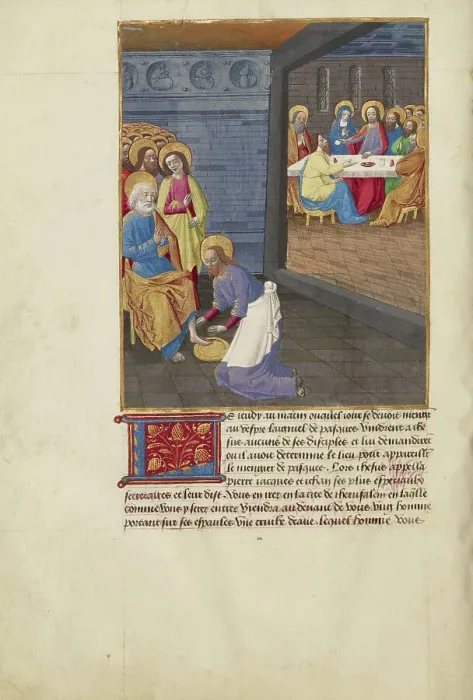 Le ieudy au matin ouquel iour se deuoit menger
au vespre laignel de pasques vindrent a ihe
sus aucuns de ses disciples et lui demanderẽt
ou il auoit determine le lieu pour appareillr
le menger de pasque. Lors ihesus appella
pierre iacques et iehan ses plus especiaulx
secretaires et leur dist. Vous en irez en la cite de iherusalem en laq̃lle
comme vous y serez entrez viendra au deuant de vous vng homme
portant sur ses espaules vne cruche deaue. lequel homme vous